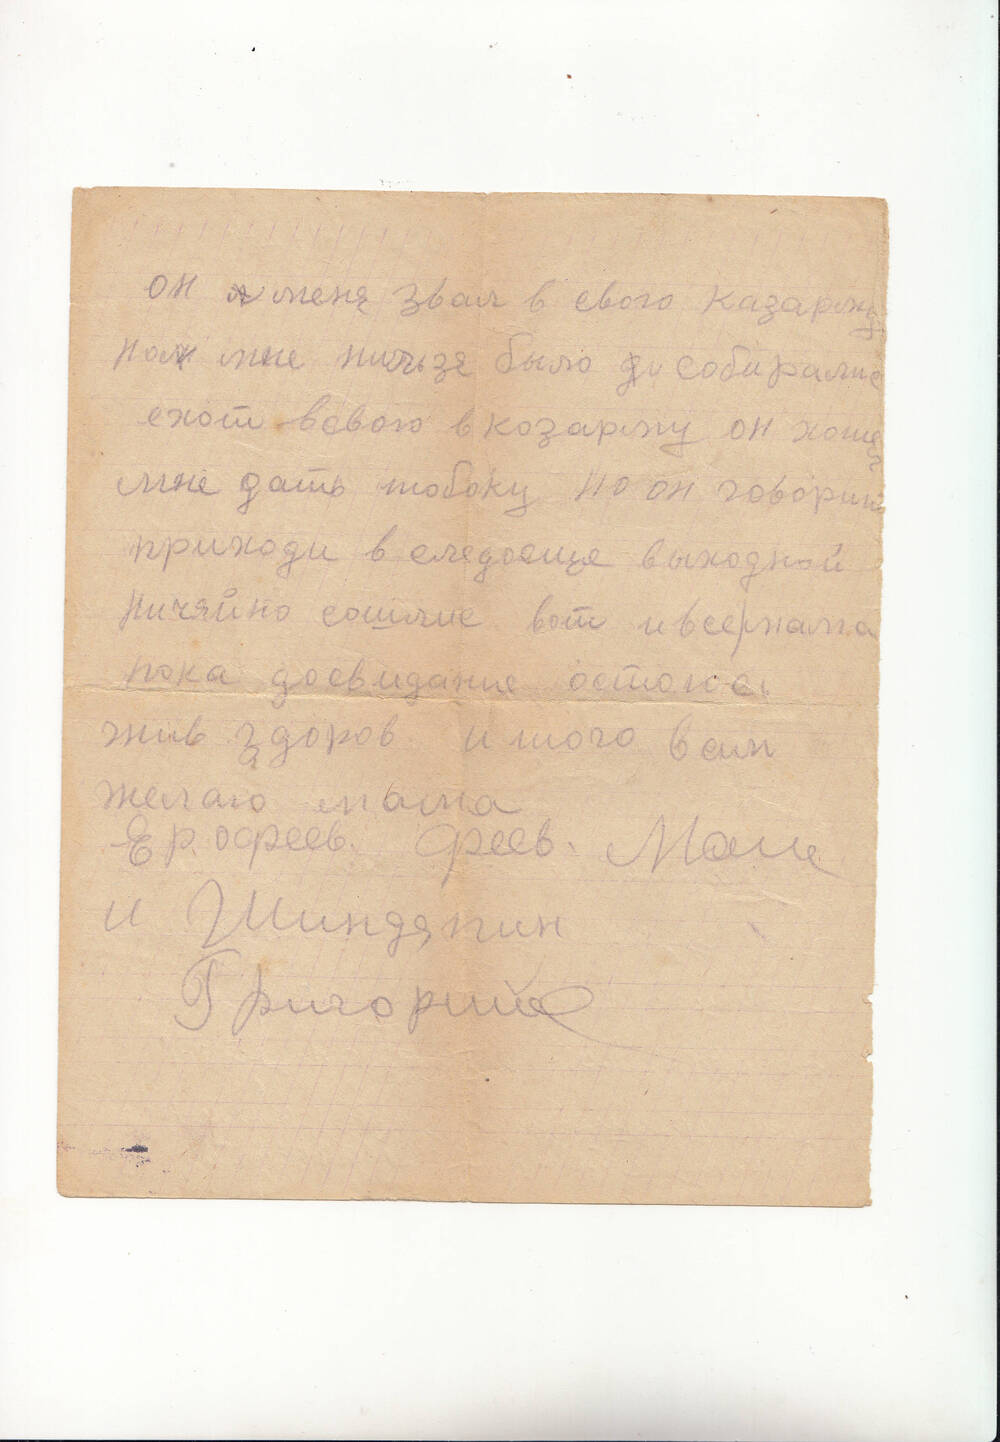 он меня звал в свою казарму
но мне ничьзя было ди собиралис
ехот всвою в козарму он хотел
мне дать тобоку но он говорит
приходи в следоеще выходной
ничяйно сошлис вот ивсе
пока досвидание остоюсь
жив здоров и того всем
желаю мама
Ерофеев. феев.
и Шиндяпин
Григорий